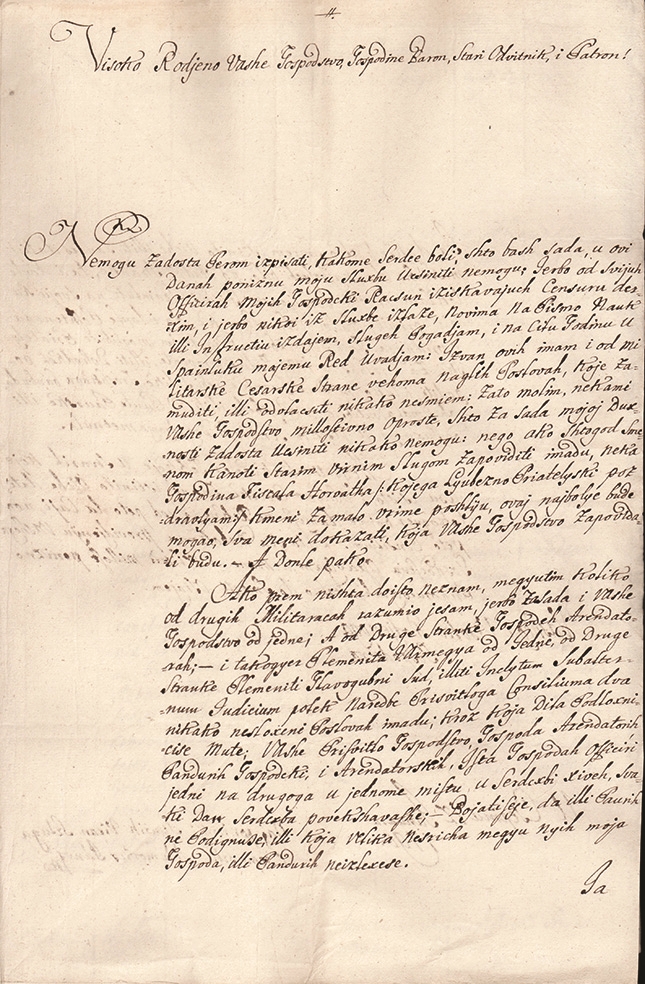 Visoko Rodjeno Vashe Gospodstvo, Gospodine Baron, Stari Odvitnik, i Patron!
Nemogu Zadosta Perom izpisati, kakome Serdce boli, Shto bash Sada, u ovi
Danah poniznu moju Sluxbu Ucsiniti nemogu: Jerbo od Svijuh
Officirah Mojih Gospodcki Racsun iziskavajuch Censuru der-
xim, i jerbo nikoi iz Sluxbe izlaze, Novima Na Pismo Nauk
illi Instructiu izdajem, Slugeh Pogadjam, i na Cilu Godinu U
Spainluku mojemu Red Uvadjam: Izvan ovih imam i od Mi
litarske Cesarske Strane vehoma Naglih Poslovah, koje Za-
muditi, illi odolacsiti nikako nesmiem: Zato molim, nekami
Vashe Gospodstvo millostivno oproste, Shto Za Sada mojoj Dux-
nosti Zadosta Ucsiniti nikako nemogu: nego ako Shtagod Sme-
nom kanoti Starim virnim Slugom Zapoviditi imadu, neka
Gospodina Fiscala Horvatha /: kojega Lyubezno Priatelyski poz
dravlyam :/ kmeni Za malo vrime poshlyu, ovaj najbolye bude
mogao, Sva meni dokazati, koja Vashe Gospodstvo Zapovida-
li budu. – A Donle pako
Ako prem nishta doisto Neznam, megyutim koliko
od drugih Militaracah razumio jesam, jerbo Zasada i Vashe
Gospodstvo od jedne; A od Druge Stranke Gospodeh Arendato-
rah; – i takogyer Plemenita Varmegya od Jedne, od Druge
Stranke Plemeniti Glavogubni Sud, illiti Inclytum Subalter-
num Judicium polek Naredbe Prisvitloga Consiliuma dva
nikako nesloxeni Poslovah imadu; kroz koja Dila Podloxni-
cise Mute; Vashe Prisvitlo Gospodstvo, Gospoda Arendatorih
Pandurih Gospodcki, i Arendatorskih, Ista Gospodah Officiri
jedni na drugoga u jednome mistu, u Serdcxbi xiveh, Sva
ki Dan Serdcxba povekshavashe; – Bojatiseje, da illi Paurih
ne Podignuse, illi koja Velika Nesricha megyu nyih moja
Gospoda, illi Pandurih neizlexese.
Ja